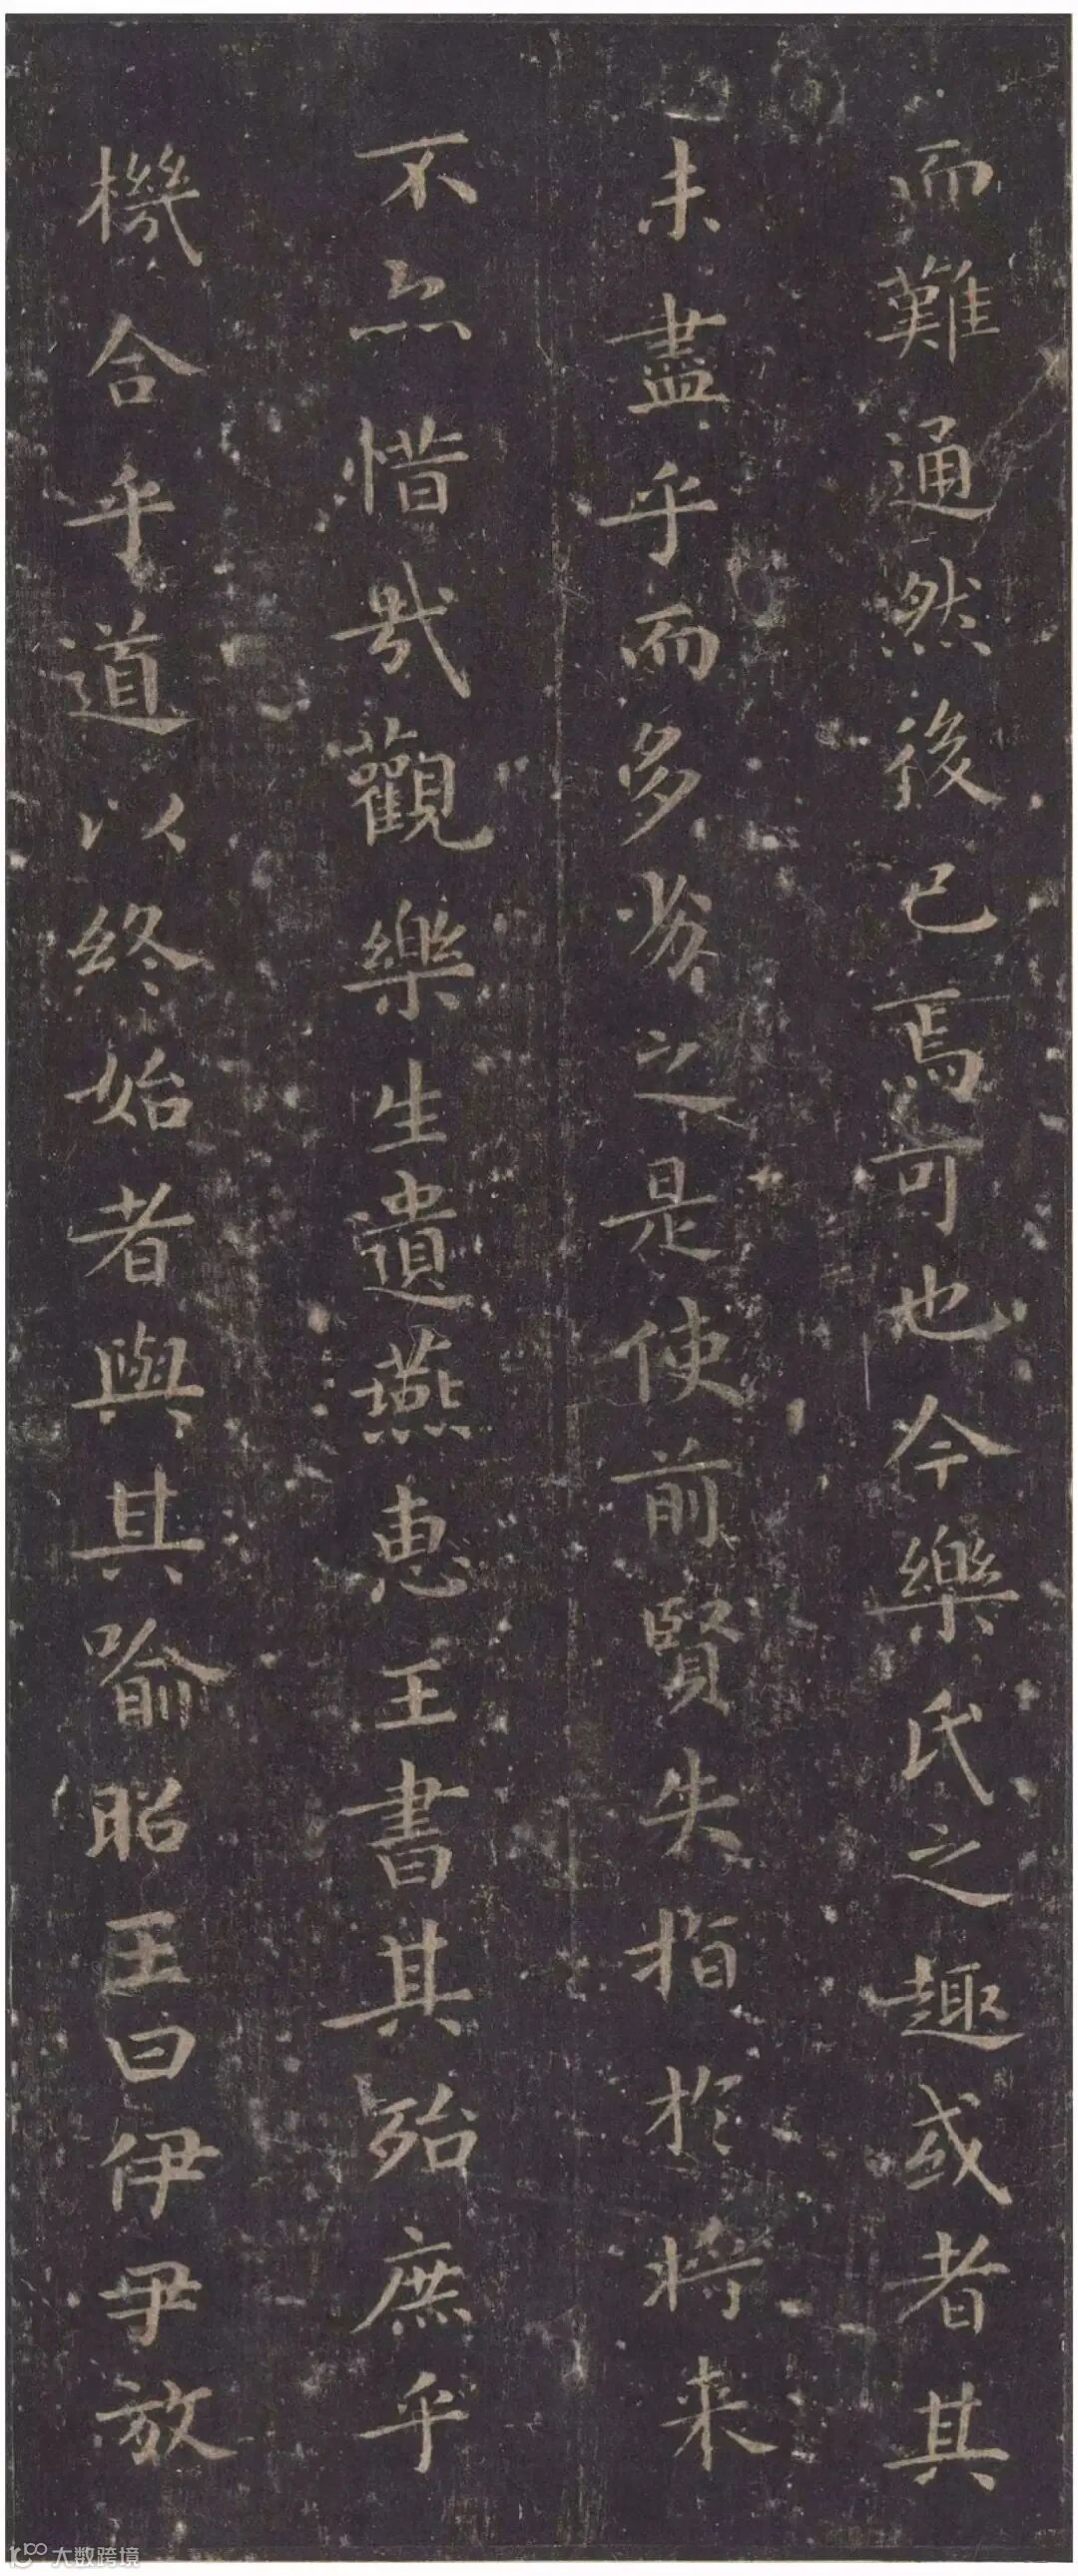 而難通然後已焉可也今樂氏之趣或者其
未盡乎而多劣之是使前賢失指於將来
不亦惜哉觀樂生遺燕惠王書其殆庶乎
機合乎道以終始者與其喻昭王曰伊尹放
大数跨境